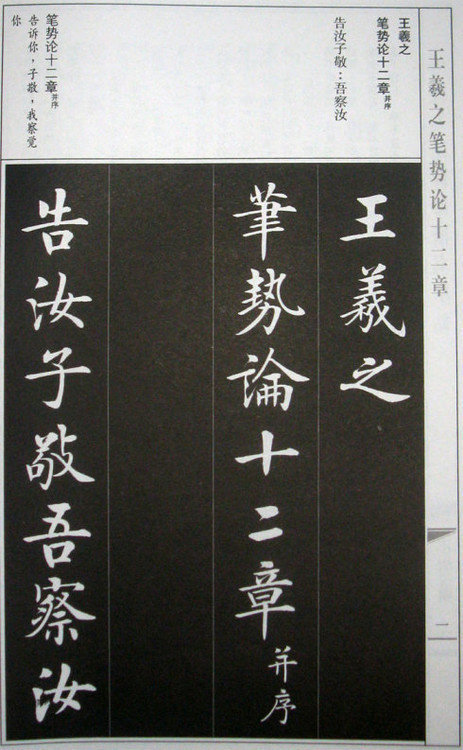 王羲之笔势论十二章
二
王羲之
笔势论十二章并序
告汝子敬：吾察汝
笔势论十二章并序
告诉你，子敬，我察觉
你
王羲之
筆勢論十二章并序
告汝子敬吾察汝